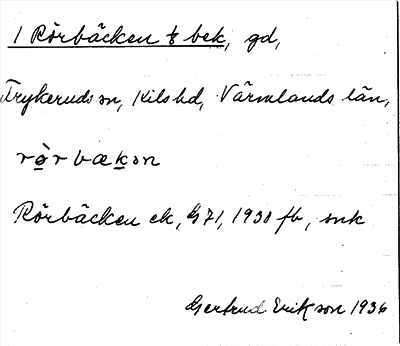 1 Rörbäcken ⅛ bek, gd,
Frykeruds sn, Kils hd, Värmlands län,
Rörbäcken ek, G71, 1930 fb, snk
Gertrud Erikson 1936